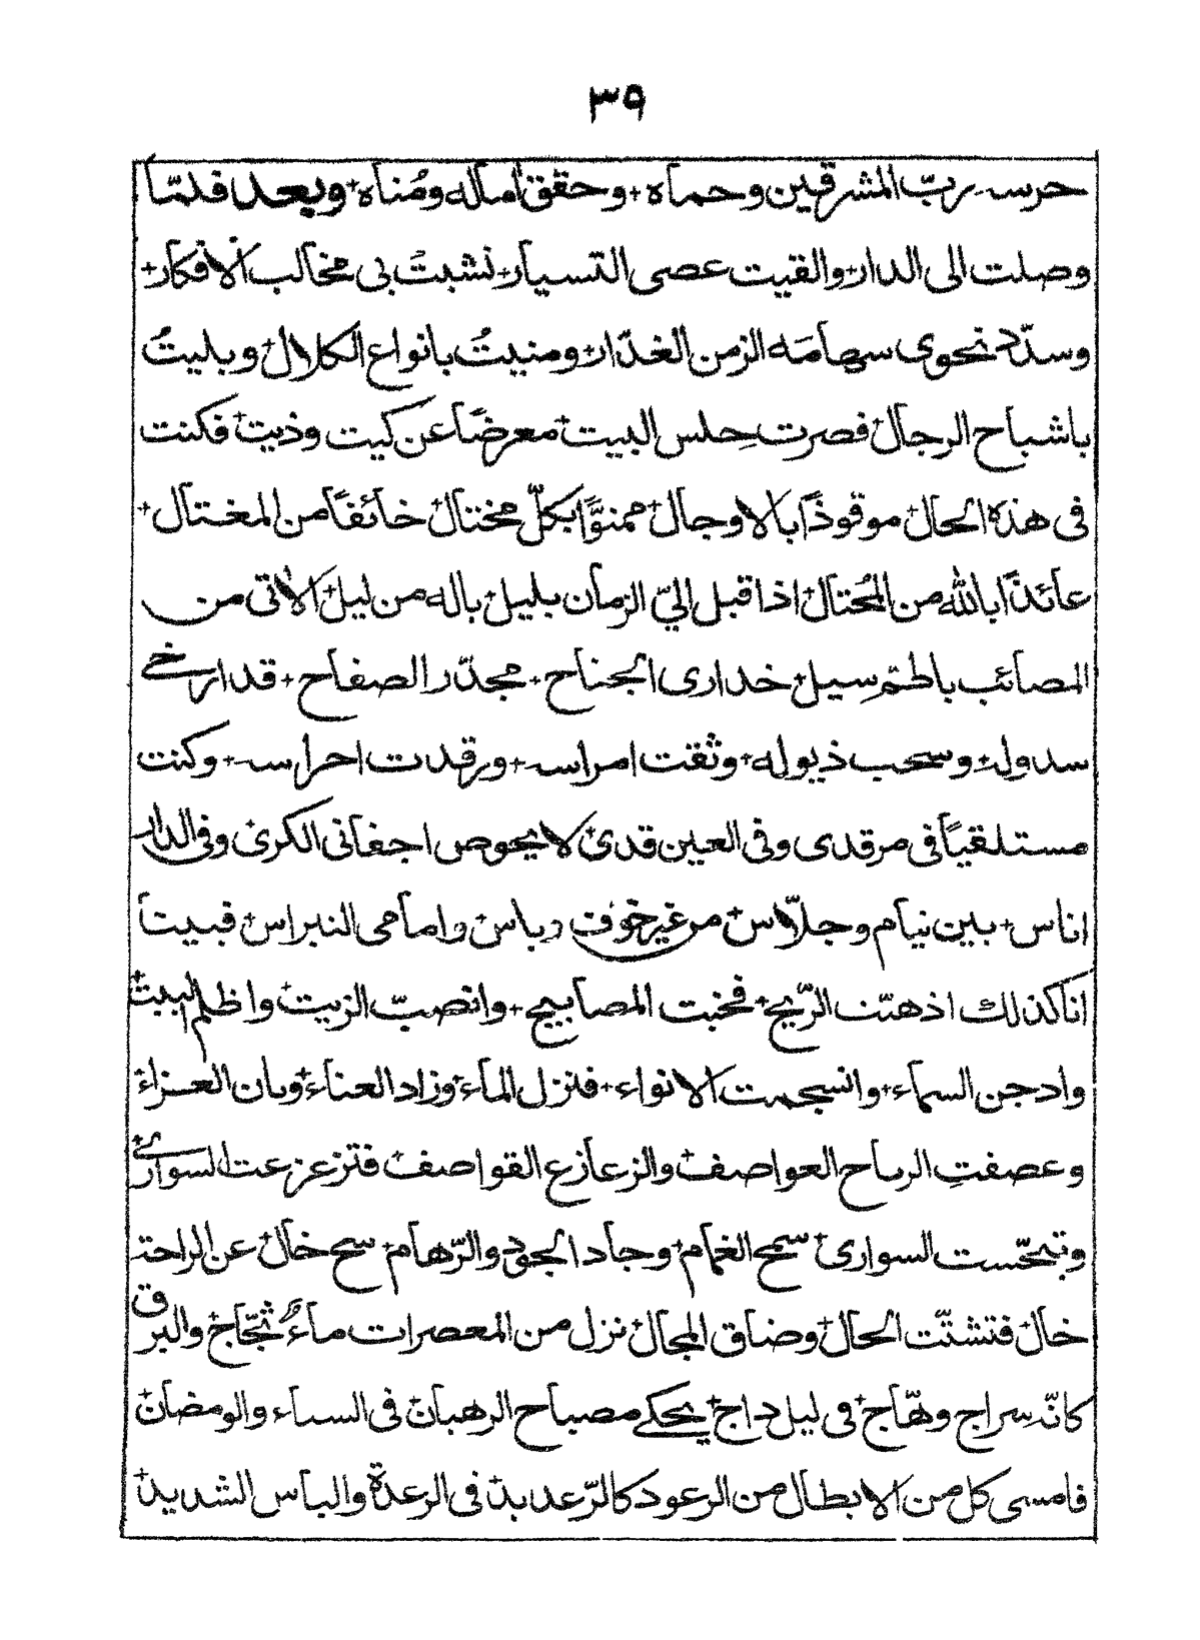 ٣٩
حرسه ربّ المشرقين وحماه + وحقق اماله ومُناه + وبعد فلمّا
وصلت الى الدار + والقيت عصى التسيار + نشبتْ بى مخالب الافكار +
وسدّد نحوى سهامَه الزمن الغدّار + ومنيتُ بانواع الكلال + وبليتُ
باشباح الرجال + فصرت حِلس البيت + معرضًا عن كيت وذيت + فكنت
فى هذه الحال + موقوذًا بالاوجال + ممنوًّا بكلّ مختال + خائفًا من المغتال +
عائذًا بالله من المُحتال + اذا قبل اليّ الزمان بليل + باله من ليل + الاتى من
المصائب باطمّ سيل + خدارى الجناح + مجدّر الصفاح + قد ارخى
سدوله + وسحب ذيوله + وثقت امراسه + ورقدت احراسه + وكنت
مستلقيًا فى مرقدى وفى العين قدىً + لا يحوص اجفانى الكرى + وفى الدار
اناس + بين نيام وجلّاس + من غير خوف وباس + واما محى النبراس + فبيتا
انا كذلك اذ هبّت الرّيح + فخبت المصابيح + وانصبّ الزيت + واظلم البيت +
وادجن السماء + وانسجمت الانواء + فنزل الماء + وزاد العناء + وبان العزاء +
وعصفتِ الرياح العواصف + والزعازع القواصف + فتزعزعت السوارى +
وتبجّست السوارى + سمح الغمام + وجاد الجود والرّهام + سح خال + عن الراحة
خال + فتشتّت الحال + وضاق المجال + نزل من المعصرات ماءً ثجّاج + والبرق
كانّه سراج وهّاج + فى ليل داج + يحكى مصباح الرهبان + فى السناء والومضان +
فامسى كل من الابطال من الرعود كالرّعديد + فى الرعدة والباس الشديد +